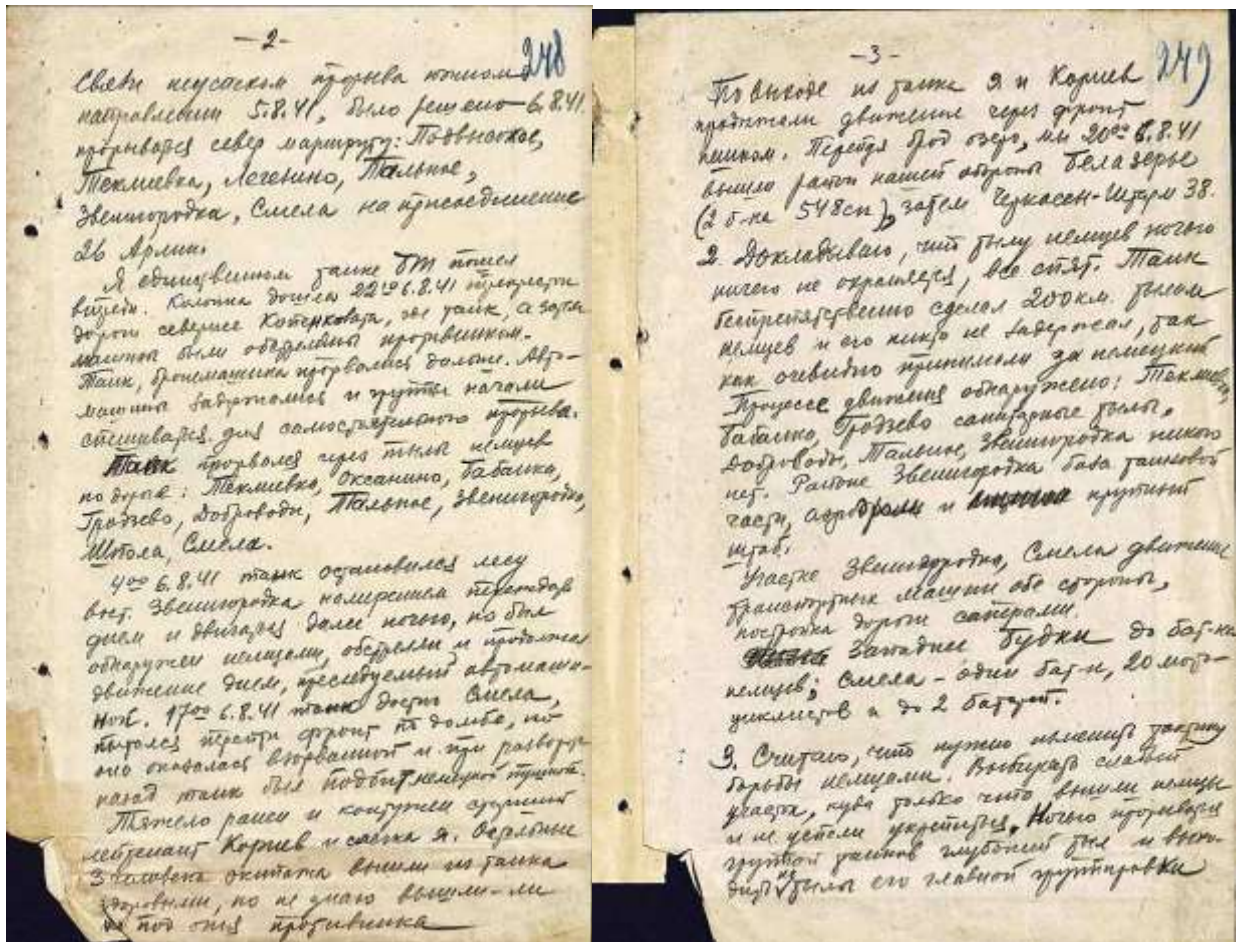 -2-
248
Связи неуспехом прорыва южном
направлении 5.8.41, было решено 6.8.41.
прорыватся север маршруту: Подвысокое,
Текмиевка, Легезино, Тальное,
Звенигородка, Смела на присоединение
26 Армии.
Я единственном танке БТ пошел
впереди. Колонна дошла 22 6.8.41 перекрестка
дороги севернее Котенковата, где танк, а затем
машины были обстреляны противником.
Танк, бронемашина прорвались дальше. Авто-
машины задержались и группы начали
спешиватся для самостоятельного прорыва.
Танк прорвался через тылы немцев
по дороге: Текмиевка, Оксанино, Бабанка,
Гродзево, Доброводи, Тальное, Звенигородка,
Шпола, Смела.
4⁰⁰ 6.8.41 танк остановился лесу
вост. Звенигородка намерением переждать
днем и двигатся далее ночью, но был
обнаружен немцами, обстрелян и продолжал
движение днем, преследуемый автомаши-
ной. 17⁰⁰ 6.8.41 танк достиг Смела,
пытался перейти фронт по дамбе, но
она оказалась взорванной и при развороте
назад танк был подбит немецкой пушкой.
Тяжело ранен и контужен старший
лейтенант Корнев и слегка я. Остальные
3 человека экипажа вышли из танка
здоровыми, но не знаю вышли-ли
из под огня противника
-3-
249
По выходе из танка я и Корнев
продолжали движение через фронт
пешком. Перейдя брод озеро, мы 20⁰⁰ 6.8.41
вышли район нашей обороны Белазерье
(2 б-на 548сп), затем Черкассы-Штарм 38.
2. Докладываю, что тылу немцев ночью
ничего не охраняется, все спят. Танк
беспрепятственно сделал 200км. тылам
немцев и его никто не задержал, так
как очевидно принимали за немецкий
Процессе движения обнаружено: Текмиевка,
Бабанка, Гродзево санитарные тылы,
Доброводы, Тальное, Звенигородка никого
нет. Районе Звенигородка база танковой
части, аэродром и крупный
штаб.
Участке Звенигородка, Смела движение
транспортных машин обе стороны,
постройка дороги саперами.
Западнее Будки до бат-на
немцев; Смела - один бат-н, 20 мото-
циклистов и до 2 батарей.
3. Считаю, что нужно изменить тактику
борьбы немцами. Выбирать слабый
участки, куда только что вышли немцы
и не успели укрепиться. Ночью прорыватся
группой танков глубокий тыл и выхо-
дить на тылы его главной группировки